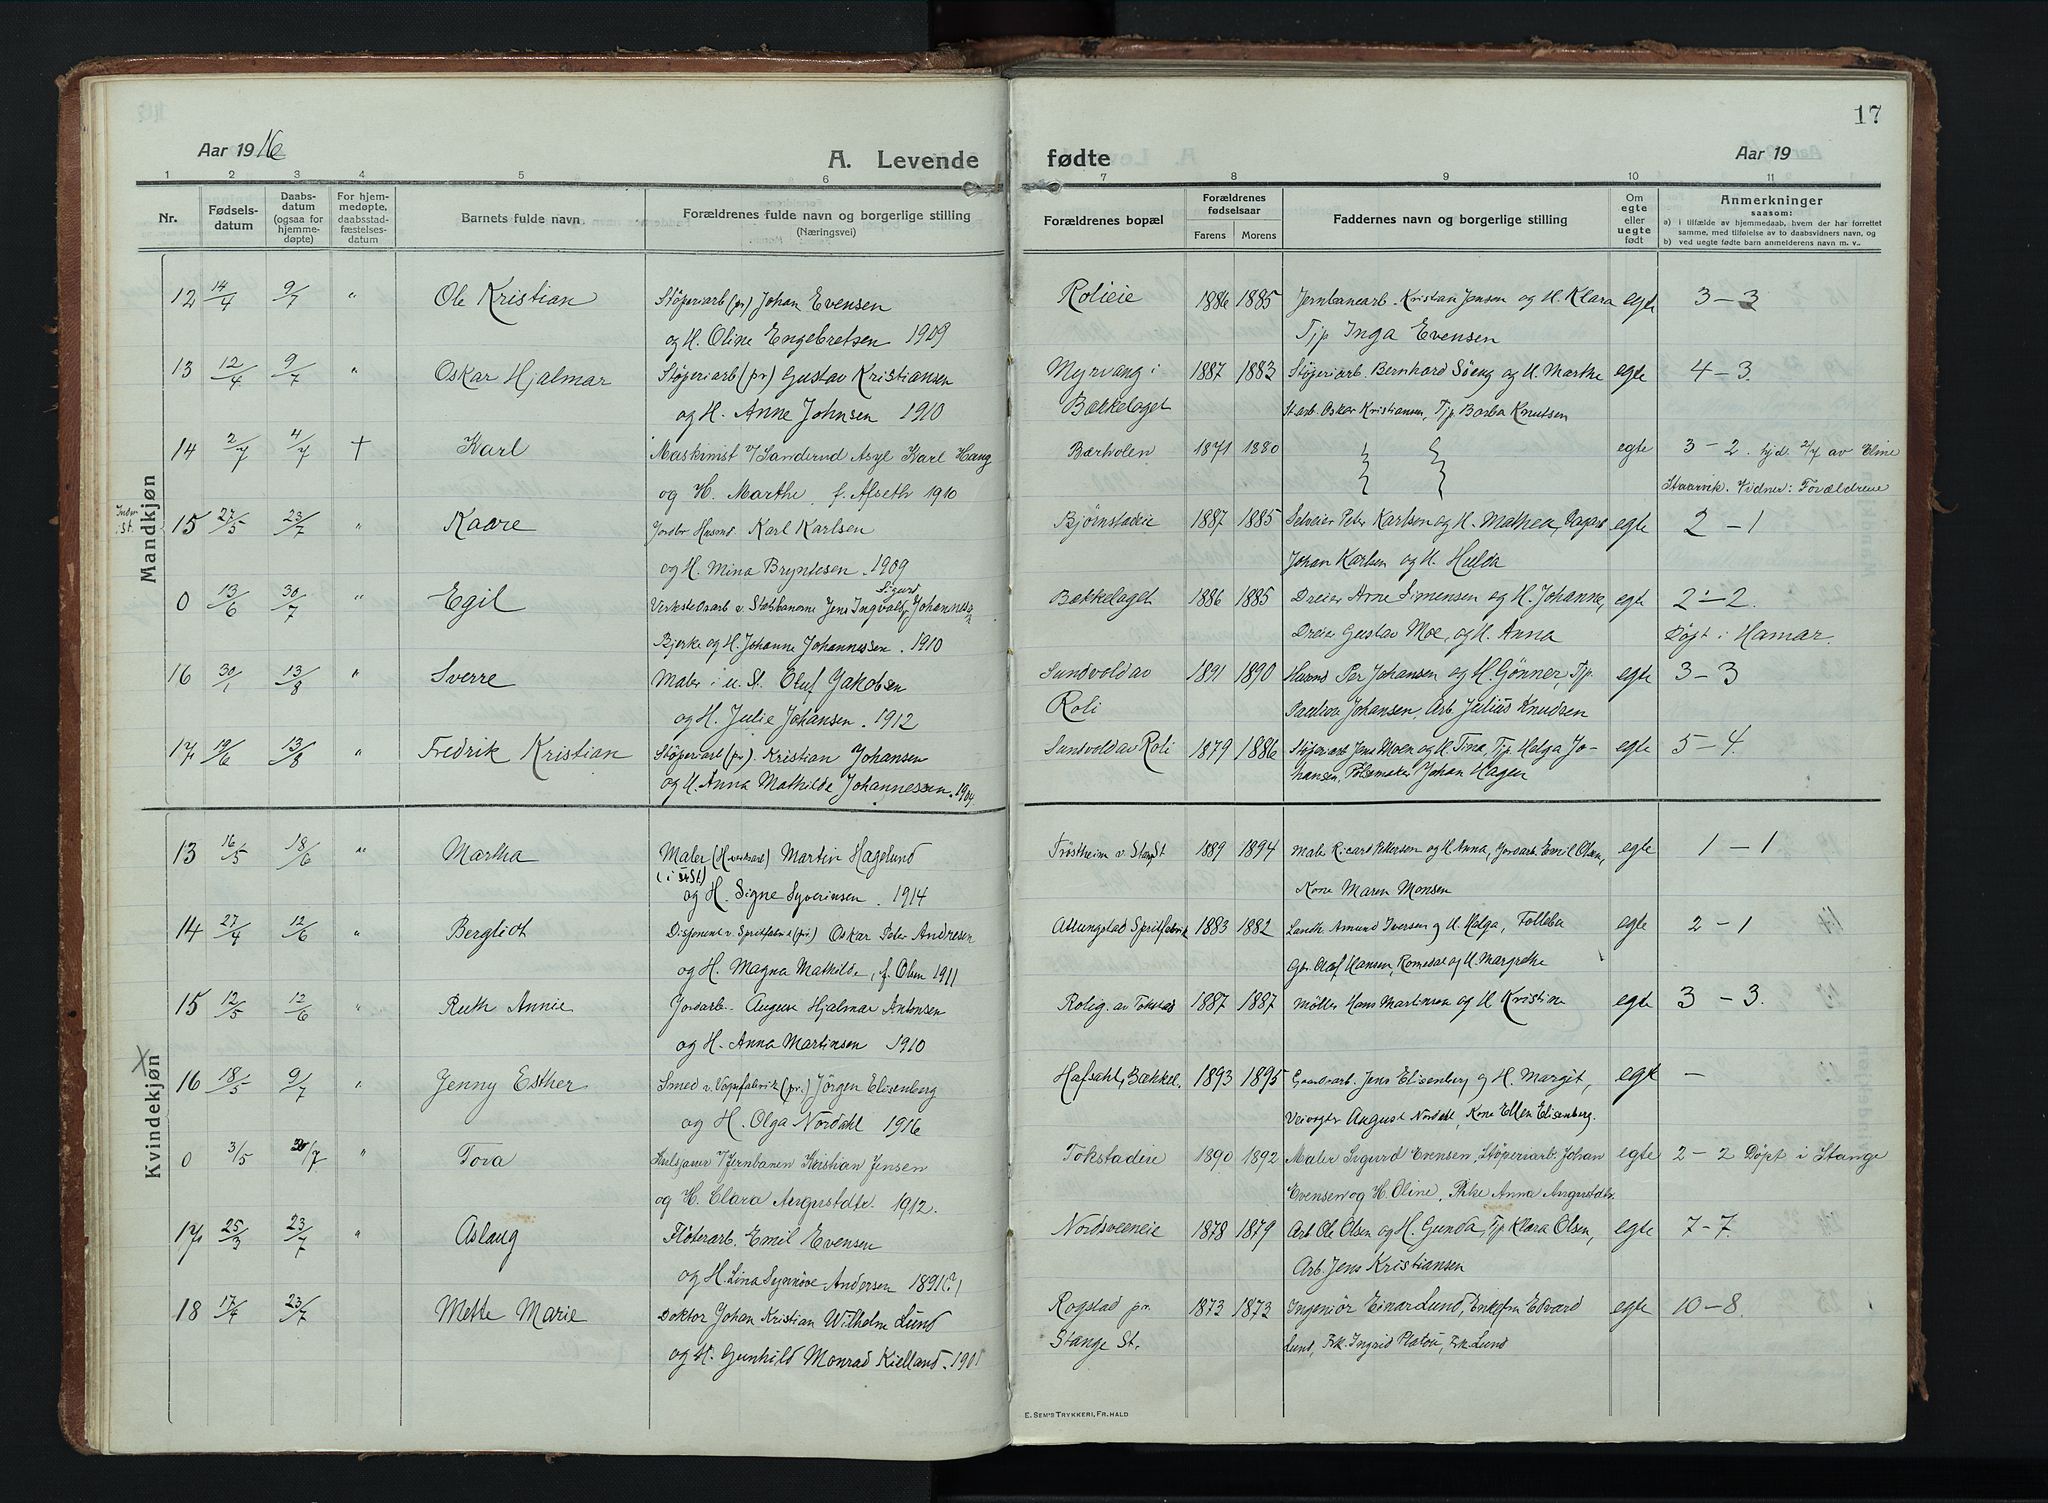 17
Aar 1916
A. Levende fødte
Aar 19
1 2 3 4 5 6 7 8 9 10 11
Nr. Fødsels-datum Daabs-datum (ogsaa for hjemme-døpte) For hjem-medøpte, daabsstad-fæstelses-datum Barnets fulde navn Forældrenes fulde navn og borgerlige stilling (Næringsvei) Forældrenes bopæl Forældrenes fødselsaar Farens Morens Faddernes navn og borgerlige stilling Om egte eller uegte født Anmerkninger saasom:
a) i tilfælde av hjemmedaab, hvem der har forrettet samme, med tilføielse av to daabsvidners navn, og
b) ved uegte fødte barn anmelderens navn m. v..
Mandkjøn
12 14/4 9/7 " Ole Kristian Støperiarb (pr) Johan Evensen Rolieie 1886 1885 Jernbanearb. Kristian Jensen og H. Klara egte 3 – 3
og H. Oline Engebretsen 1909 Tjp Inga Evensen
13 12/4 9/7 " Oskar Hjalmar Støperiarb (pr) Gustav Kristiansen Myrvang i 1887 1883 Støperiarb. Bernhard Söeng og H. Marthe egte 4 – 3.
og H. Anne Johnsen 1910 Bækkelaget St.arb. Oskar Kristiansen, Tjp Borba Knutsen
14 2/7 4/7 + Karl Maskinist v/ Sanderud Asyl Karl Haug Bærholen 1871 1880 egte 3 – 2. hjd. 2/7 av Eline
og H. Marthe f. Afseth 1910 Staarvik. Vidner: Forældrene
15 27/5 23/7 " Kaare Jordbr Husmd. Karl Karlsen Bjørnstadeie 1887 1885 Selveier Peter Karlsen og H. Mathea, Dagarb egte 2 – 1
og H. Mina Bryntesen. 1909 Johan Karlsen og H. Hulda
0 13/6 30/7 " Egil Verkstedsarb v. Statsbanerne Jens Ingvald Sigurd Johannessen Bækkelaget 1886 1885 Dreier Arne Simensen og H. Johanne, egte 2 – 2.
Bjerke og H. Johanne Johannessen. 1910 Dreier Gustav Moe, og H. Anna Døpt i Hamar.
16 30/1 13/8 " Sverre Maler i u. St. Oluf Jakobsen Sundvold av 1891 1890 Husms Per Johansen og H. Gönner, Tjp. egte 3 – 3
og H. Julie Johansen. 1912 Roli Paulina Johansen, Arb. Julius Knudsen
17 19/6 13/8 " Fredrik Kristian Støperiarb (pr). Kristian Johansen Sundvold av Roli 1879 1886 Støperiarb Jens Moen og H. Tina, Tjp Helga Jo- egte 5 – 4.
og H. Anna Mathilde Johannessen. 1904 hansen, Pølsemaker Johan Hagen
Kvindekjøn
13 16/5 18/6 " Martha Maler (H) Martin Hagelund Frøstheim v. Stange St 1889 1894 Maler Ricard Pettersen og H. Anna, Jordarb. Emil Olsen, egte 1 – 1
og H. Signe Syverinsen. 1914 Kone Maren Monsen
14 27/4 12/6 " Bergliot Disponent v. Spritfabrik (pr.) Oskar Peter Andresen Atlungstad Spritfabrik 1883 1882 Landh. Amund Iversen og H. Helga, Tolleba egte 2 – 1
og H. Magna Mathilde, f. Olsen 1911 Gbr. Olaf Hansen, Romedal og H. Margrethe
15 12/5 12/6 " Ruth Annie Jordarb. August Hjalmar Antonsen Rolig. av Tokstad 1887 1887 Møller Hans Martinsen og H. Kristine egte 3 – 3.
og H. Anna Martinsen 1910
16 18/5 9/7 " Jenny Esther Smed v. Vognfabrik (pr.) Jörgen Elisenberg Hafsahl, Bækkel. 1893 1895 Gaardarb. Jens Elisenberg og H. Margit, egte –
og H. Olga Nordahl 1916 Veivogter August Nordahl, Kone Ellen Elisenberg.
0 3/5 30/7 " Tora Kulsjauer v/ Jernbanen Kristian Jensen Tokstadeie 1890 1892 Maler Sigurd Evensen, Støperiarb. Johan egte 2 – 2 Döpt i Stange
og H. Clara Augustdtr. 1912. Evensen og H. Oline, Pike Anna Augustdtr.
17 25/3 23/7 " Aslaug Fløterarb. Emil Evensen Nordsveeneie 1878 1879 Arb Ole Olsen og H. Gunda, Tjp Klara Olsen, egte 7 – 7.
og H. Lina Synnöve Andersen 1891(?) Arb. Jens Kristiansen
18 17/4 23/7 Mette Marie Doktor Johan Kristian Wilhelm Lund Rogstad pr. 1873 1873 Ingeniör Einar Lund, Enkefru Edvard egte 10 – 8.
og H. Gunhild Monrad Kielland. Stange St. Lund, Frk. Ingrid Platou, Frk. Lund
E. SEM'S TRYKKERI, FR.HALD